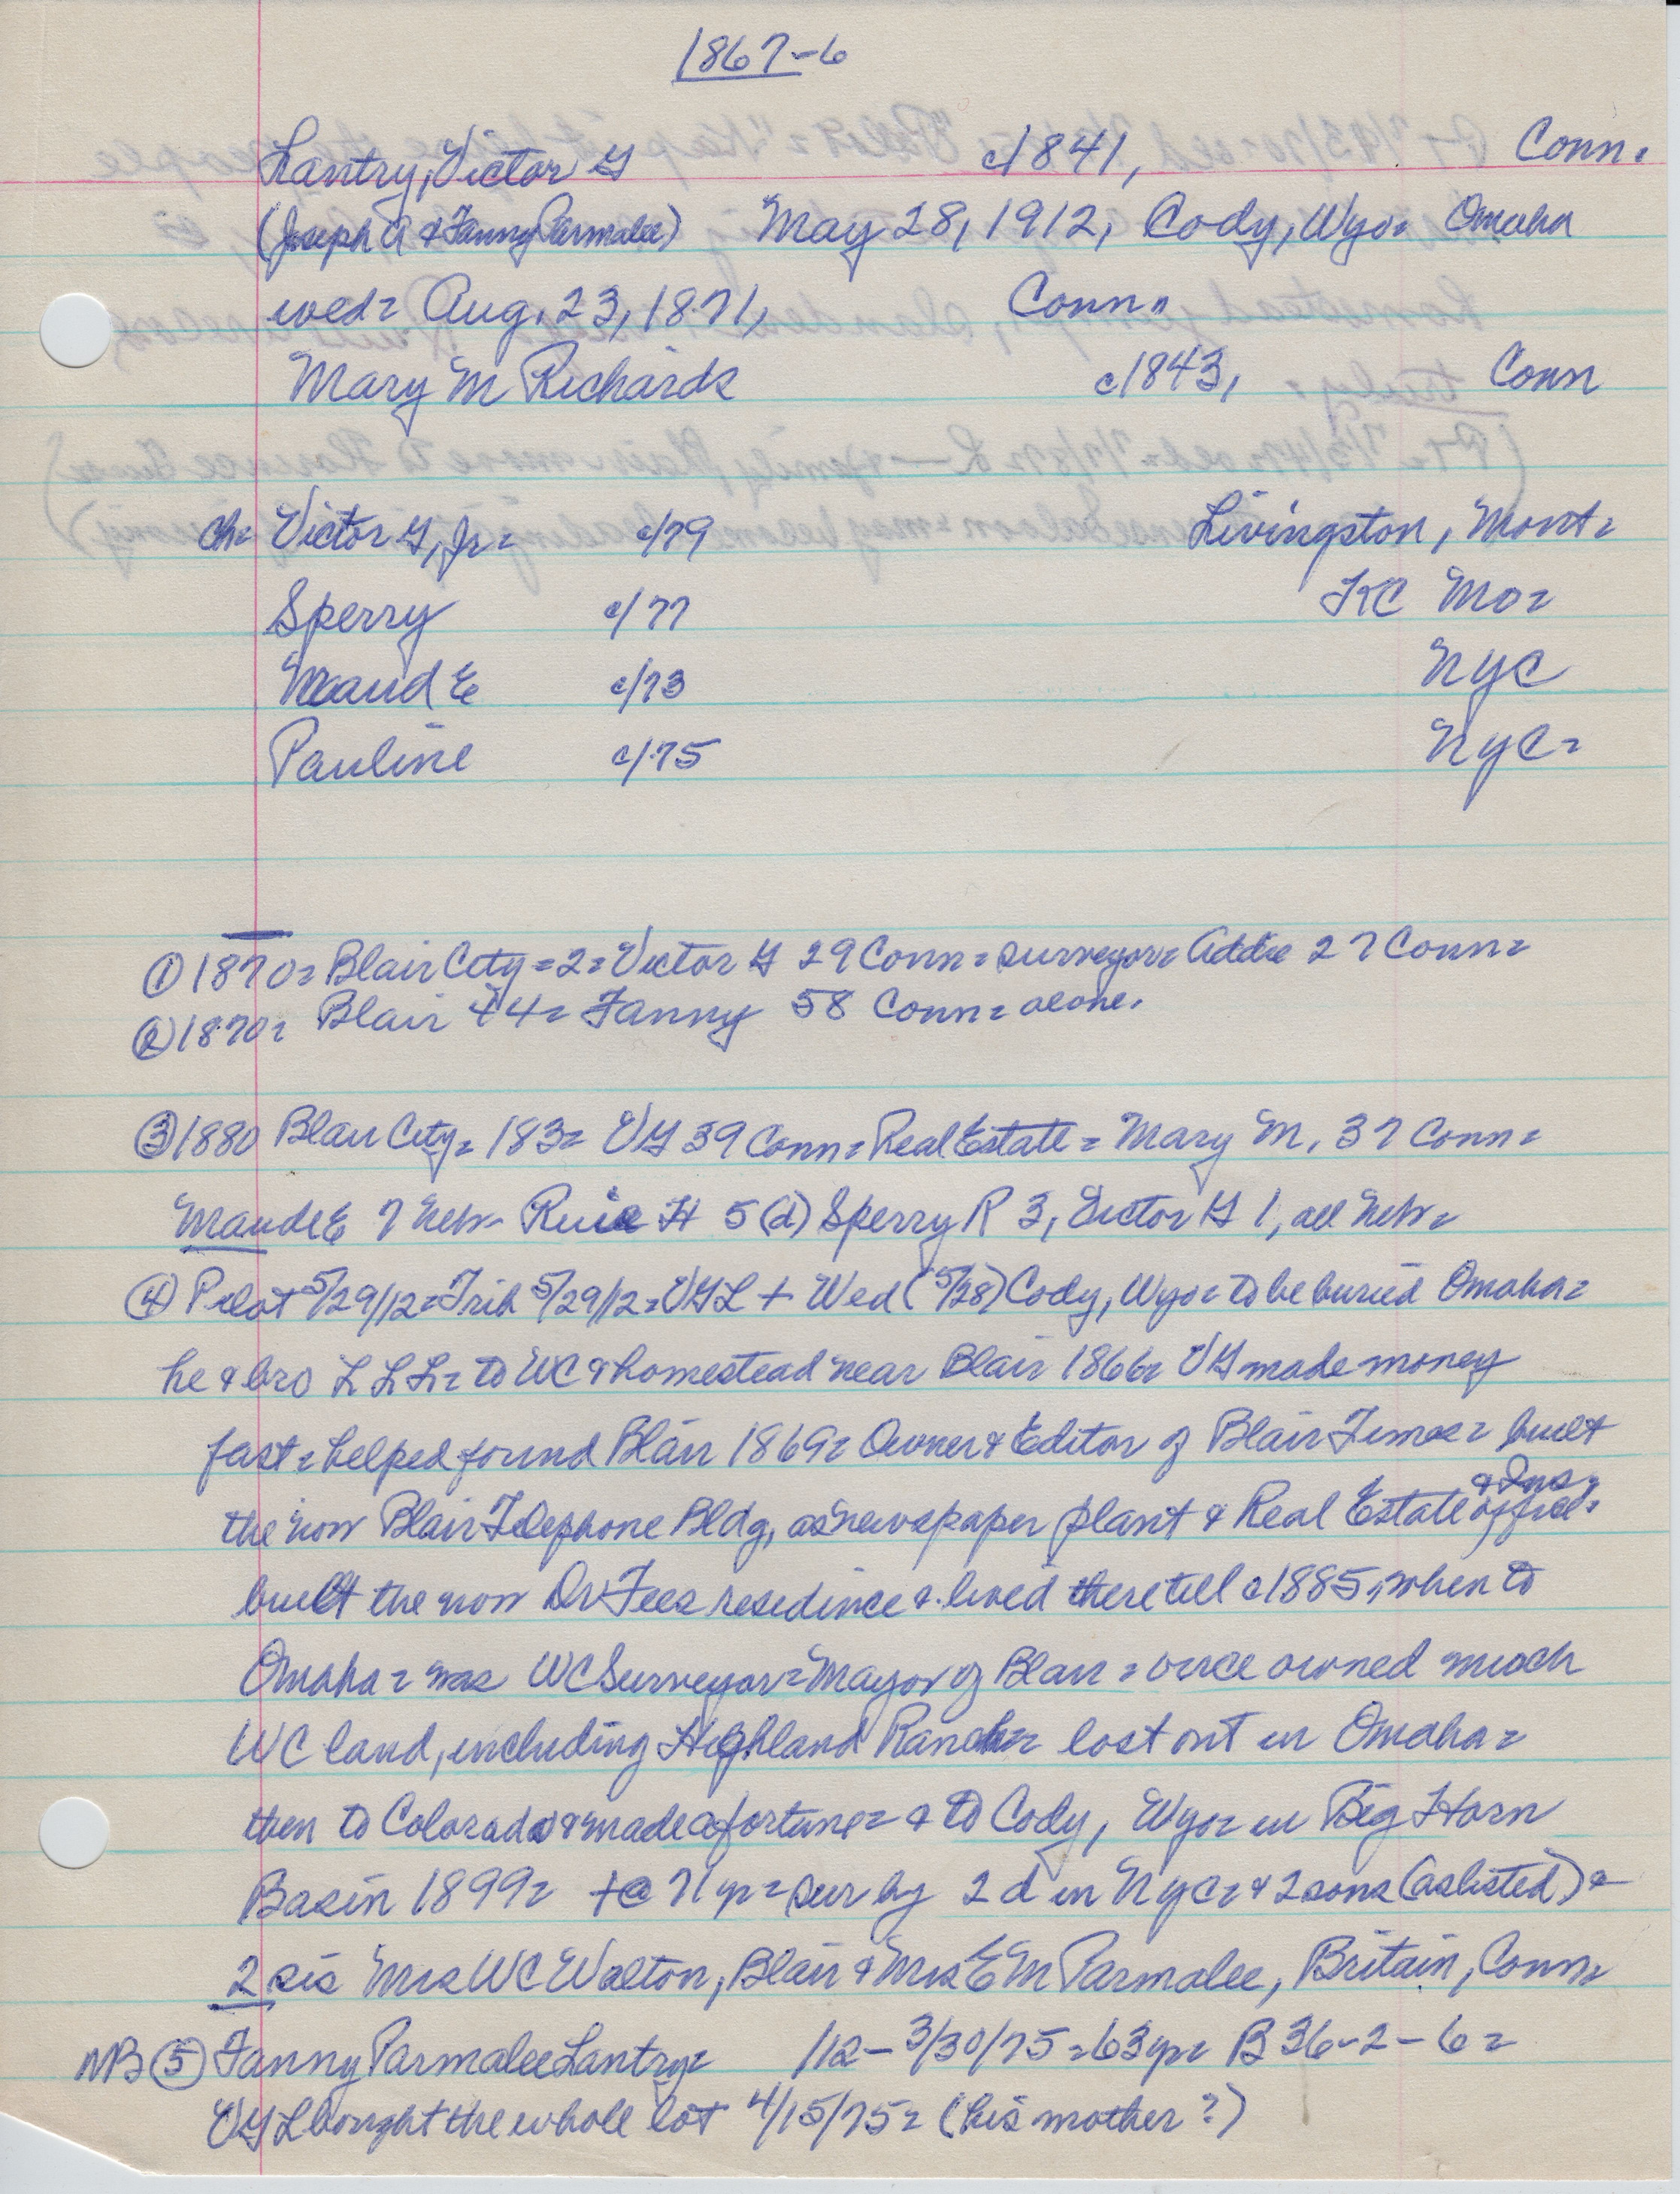 1867-6
Lantry, Victor G c/1841, Conn.
(Joseph A & Fanny Parmalee) May 28, 1912, Cody, Wyo= Omaha
wed= Aug. 23, 1871, Conn=
Mary M Richards c/1843, Conn
ch= Victor G, Jr= c/79 Livingston, Mont=
Sperry c/77 KC Mo=
Maud E c/73 NYC
Pauline c/75 NYC=
① 1870= Blair City=2= Victor G 29 Conn= surveyor= Addie 27 Conn=
② 1870= Blair 44= Fanny 58 Conn= alone.
③ 1880 Blair City= 183= VG 39 Conn= Real Estate= Mary M, 37 Conn=
Maude E 7 Neb- H 5 (d) Sperry R 3, Victor G 1, all Neb=
④ Pilot 5/29/12= Trib 5/29/12= VGL + Wed (5/28) Cody, Wyo= to be buried Omaha=
he & bro L L L= to WC & homestead near Blair 1866= VG made money
fast= helped found Blair 1869= Owner & Editor of Blair Times= built
the now Blair Telephone Bldg, as newspaper plant & Real Estate & Ins, office=
built the now Dr Fees residence & lived there till c1885, when to
Omaha= was WC Surveyor= Mayor of Blair= once owned much
WC land, including Highland Ranch= lost out in Omaha=
then to Colorado & made a fortune= & to Cody, Wyo= in Big Horn
Basin 1899= +@ 71 yr= sur by 2 d in NYC= & 2 sons (as listed) &
2 sis Mrs WC Walton, Blair & Mrs E M Parmalee, Britain, Conn=
NB ⑤ Fanny Parmalee Lantry= /12- 3/30/75=63yr= B 36-2-6=
VGL bought the whole lot 4/15/75= (his mother?)